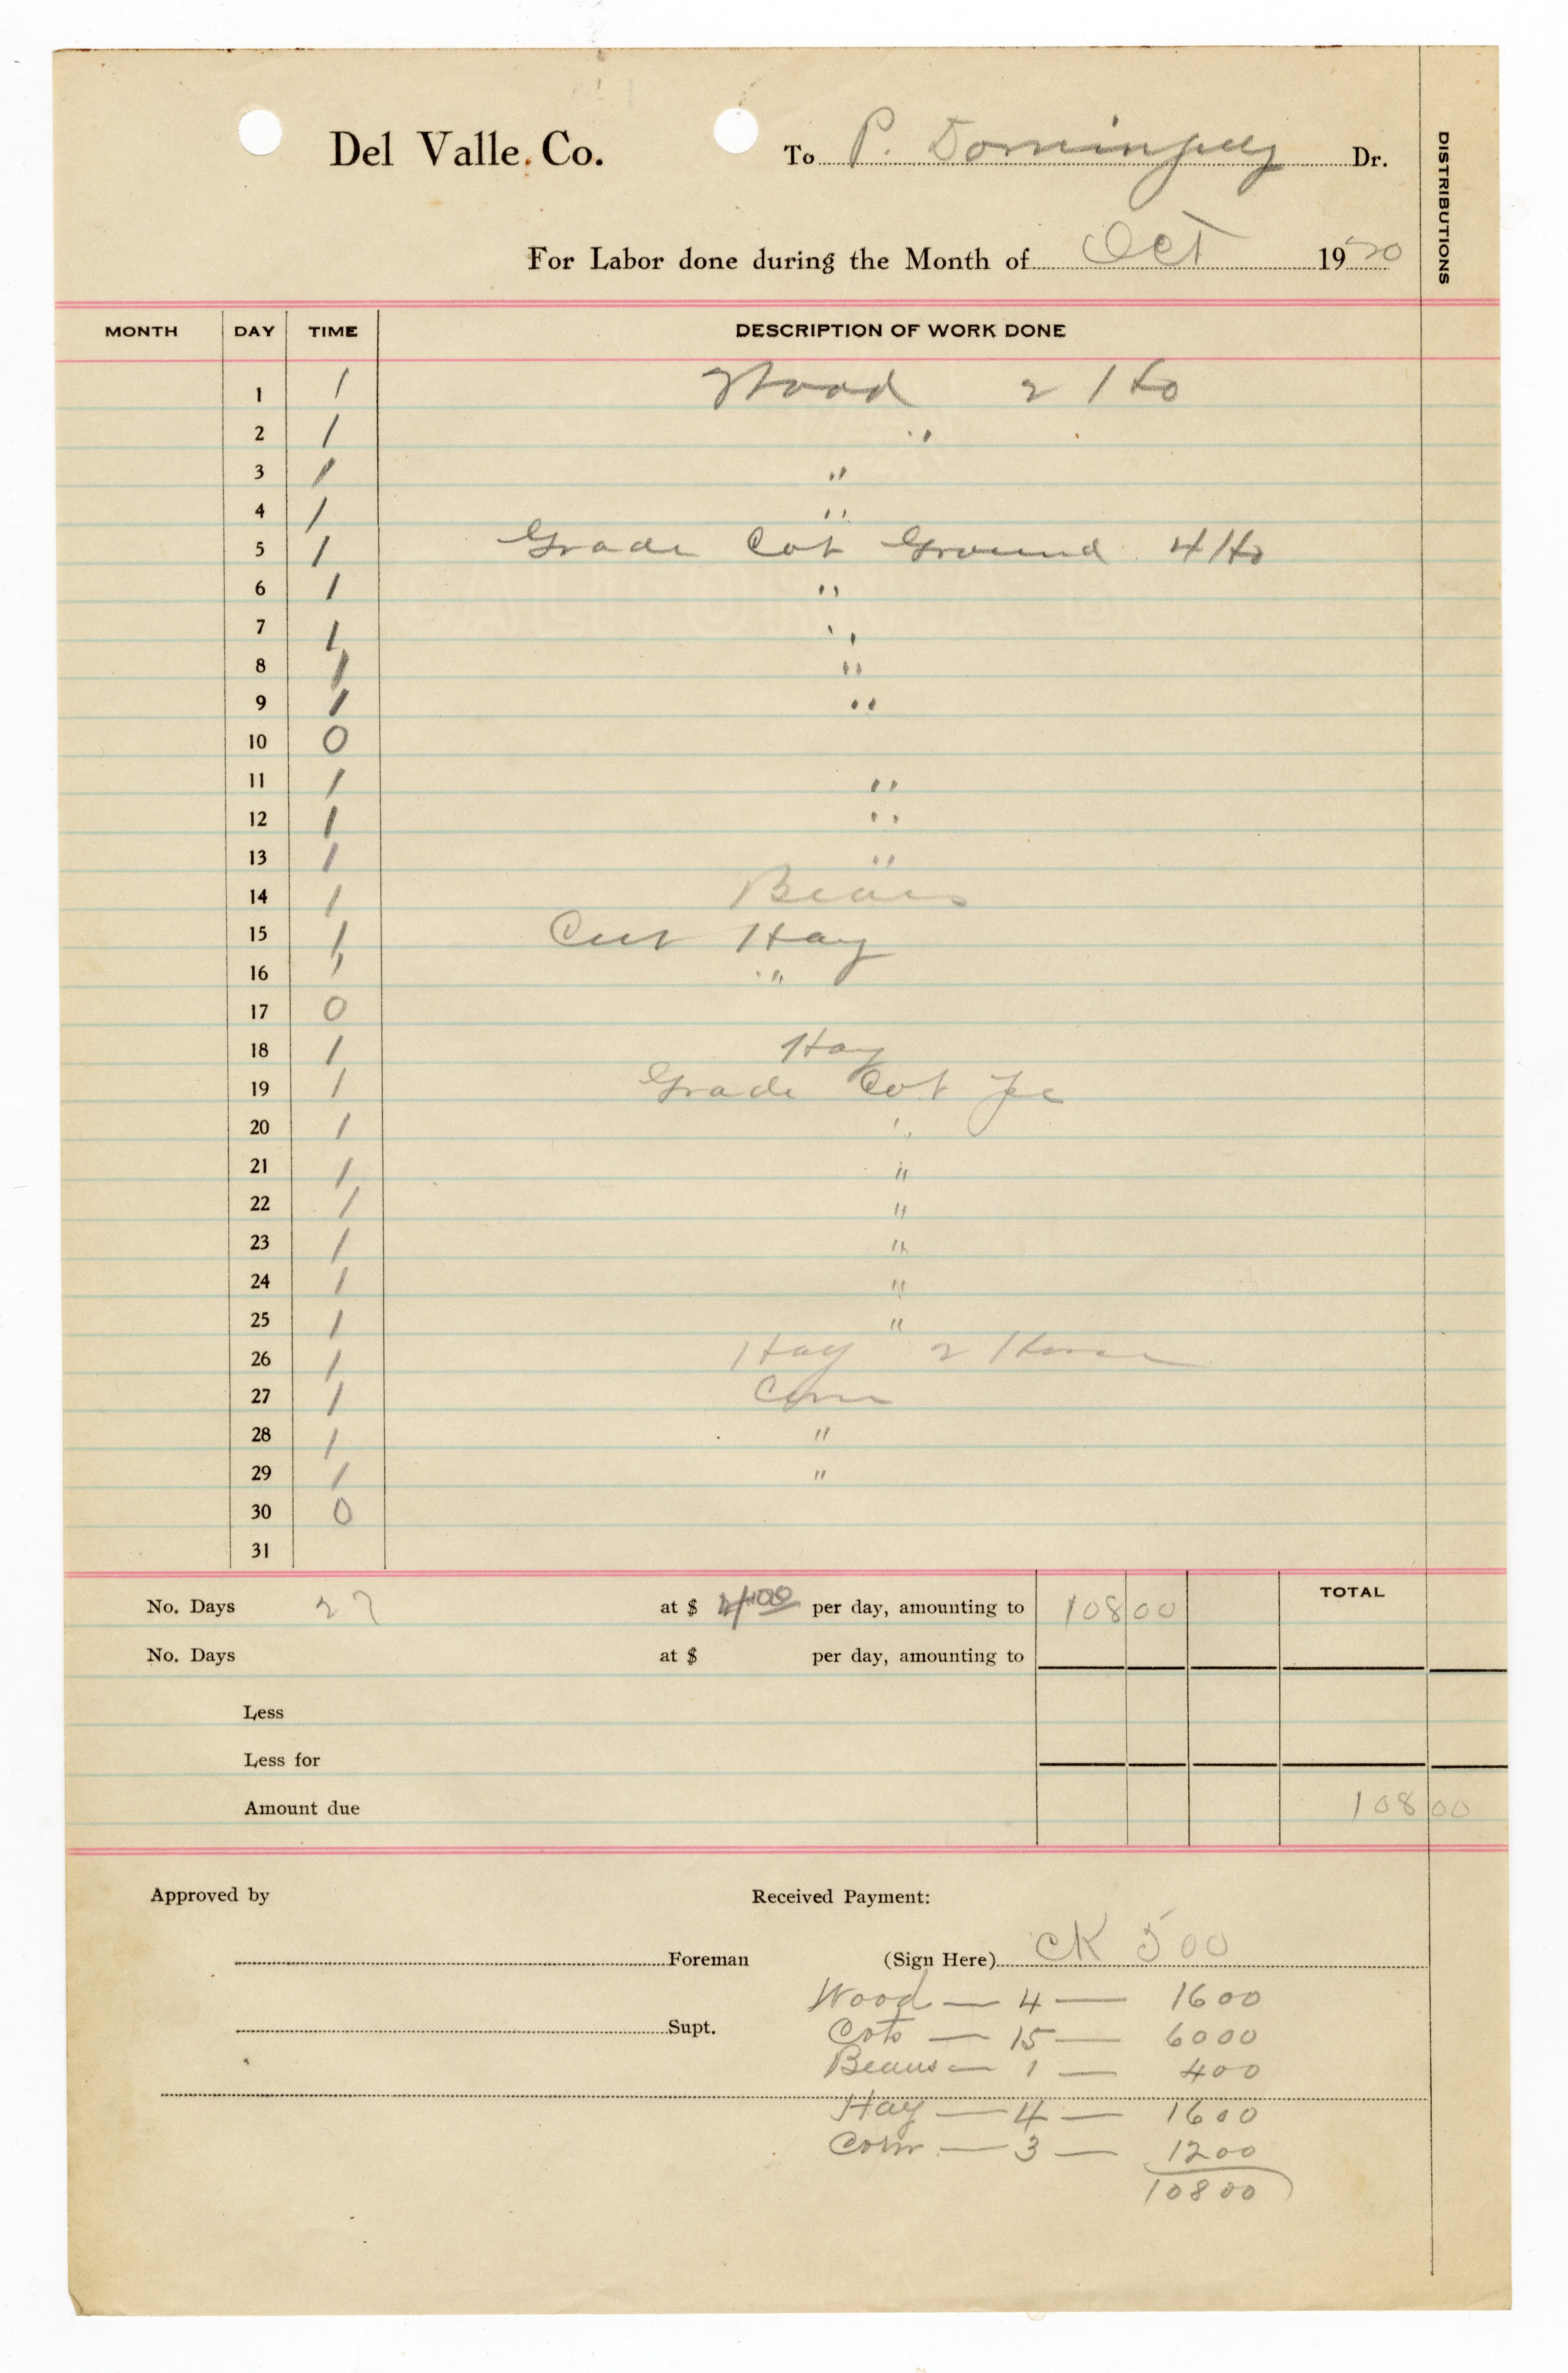 Del Valle Co. To P. Dominguez Dr.
DISTRIBUTIONS
For Labor done during the Month of Oct 1920
MONTH DAY TIME DESCRIPTION OF WORK DONE
1 1 Wood 2 Ho
2 1 "
3 1 "
4 1 "
5 1 Grade Cot Ground 4 Ho
6 1 "
7 1 "
8 1 "
9 1 "
10 0
11 1 "
12 1 "
13 1 "
14 1 Beans
15 1 Cut Hay
16 1 "
17 0
18 1 Hay
19 1 Grade Cot
20 1 "
21 1 "
22 1 "
23 1 "
24 1 "
25 1 "
26 1 Hay 2 Horse
27 1 Corn
28 1 "
29 1 "
30 0
31
TOTAL
No. Days 27 at $ 4.00 per day, amounting to 108 00
No. Days at $ per day, amounting to
Less
Less for
Amount due 108 00
Approved by Received Payment:
Foreman (Sign Here) CK 500
Wood — 4 — 1600
Supt. Cots — 15 — 6000
Beans — 1 — 400
Hay — 4 — 1600
Corn — 3 — 1200
10800